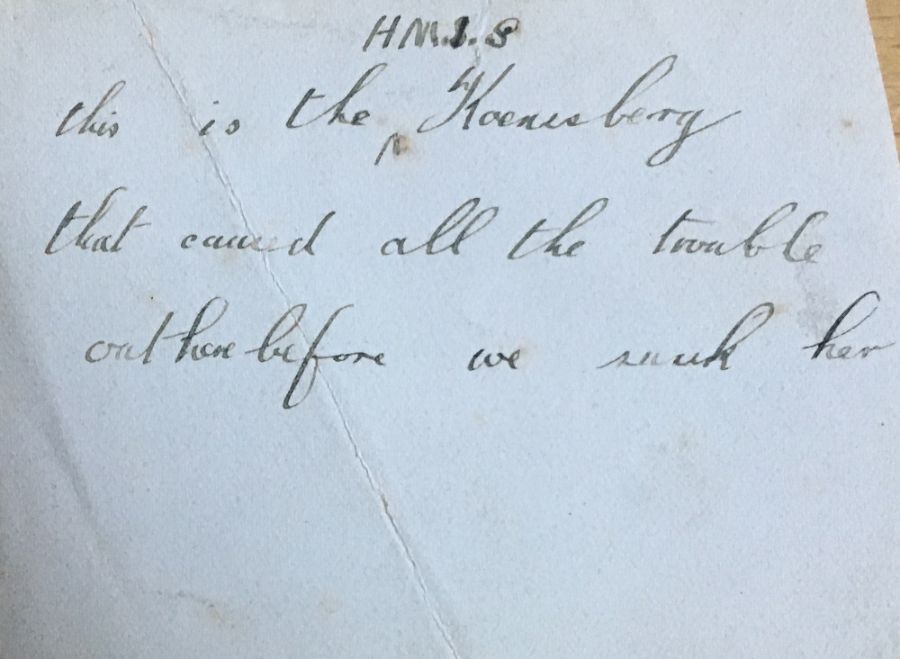 H.M.I.S
this is the Koenisberg
that caused all the trouble
out here before we sunk her